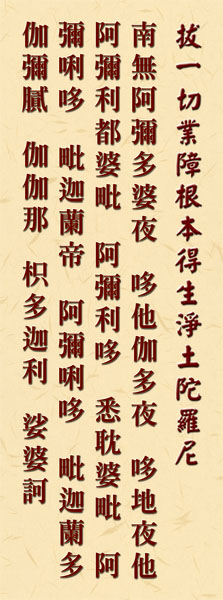 拔一切業障根本得生淨土陀羅尼
南無阿彌多婆夜 哆他伽多夜 哆地夜他
阿彌利都婆毗 阿彌利哆 悉耽婆毗 阿
彌唎哆 毗迦蘭帝 阿彌唎哆 毗迦蘭多
伽彌膩 伽伽那 枳多迦利 娑婆訶